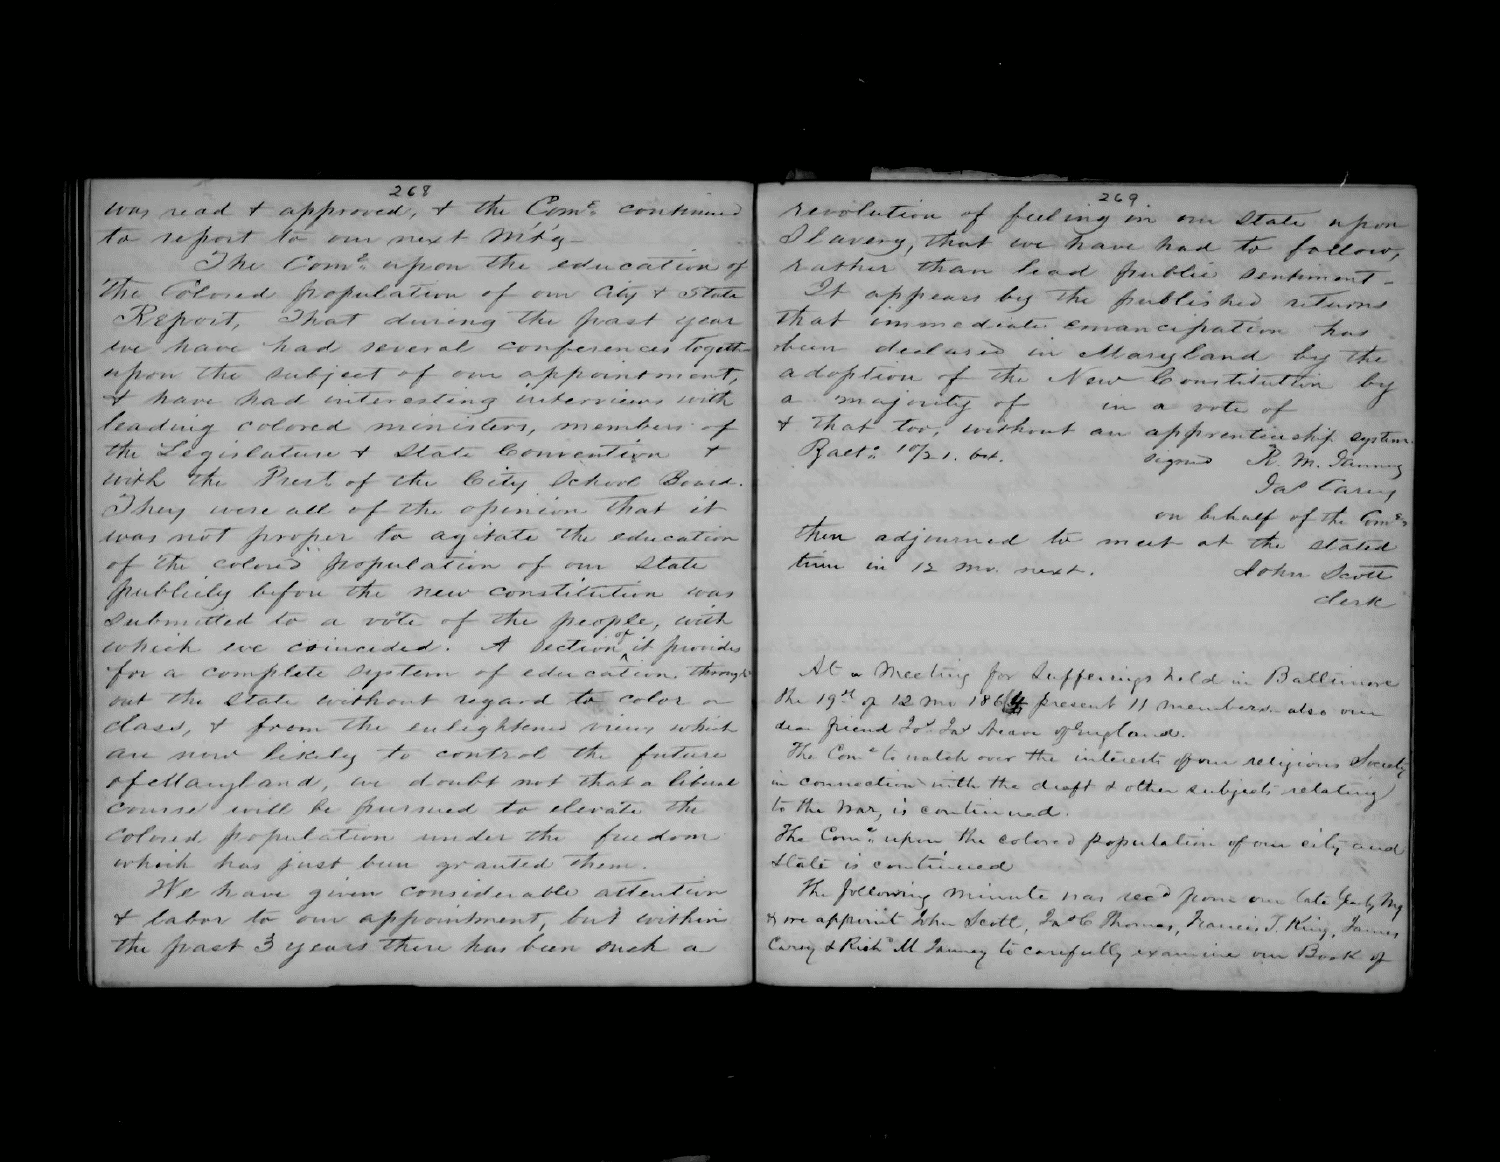 268
was read & approved, & the Come. continued
to report to our next Mt'g—
The Come. upon the education of
the Colored population of our City & State
Report, That during the past year
we have had several conferences togeth-
upon the subject of our appointment,
& have had interesting interviews with
leading colored ministers, members of
the Legislature & State Convention &
with the Prest. of the City School Board.
They were all of the opinion that it
was not proper to agitate the education
of the colored population of our State
publicly before the new constitution was
submitted to a vote of the people, with
which we coincided. A section of it provides
for a complete system of education through
out the State without regard to color or
class, & from the enlightened views which
are now likely to control the future
of Maryland, we doubt not that a liberal
course will be pursued to elevate the
Colored population under the freedom
which has just been granted them.
We have given considerable attention
& labor to our appointment, but within
the past 3 years there has been such a
269
revolution of feeling in our State upon
Slavery, that we have had to follow,
rather than lead public sentiment—
It appears by the published returns
that immediate emancipation has
been declared in Maryland by the
adoption of the New Constitution by
a majority of in a vote of
& that too, without an apprenticeship system.
Balto. 10/21. 64. signed R. M. Janney
Jas Carey
on behalf of the Come.
then adjourned to meet at the stated
time in 12 mo. next. John Scott
clerk
At a Meeting for Sufferings held in Baltimore
the 19th of 12 mo 1864 present 11 members also our
dear friend Jas Neave of England.
The Come to watch over the interests of our religious Society
in connection with the draft & other subjects relating
to the War, is continued.
The Come. upon the colored population of our city and
State is continued
The following minute was recd from our late Yearly Mg
& we appoint John Scott, Jas C Thomas, Francis T. King, James
Carey & Richd M Janney to carefully examine our Book of